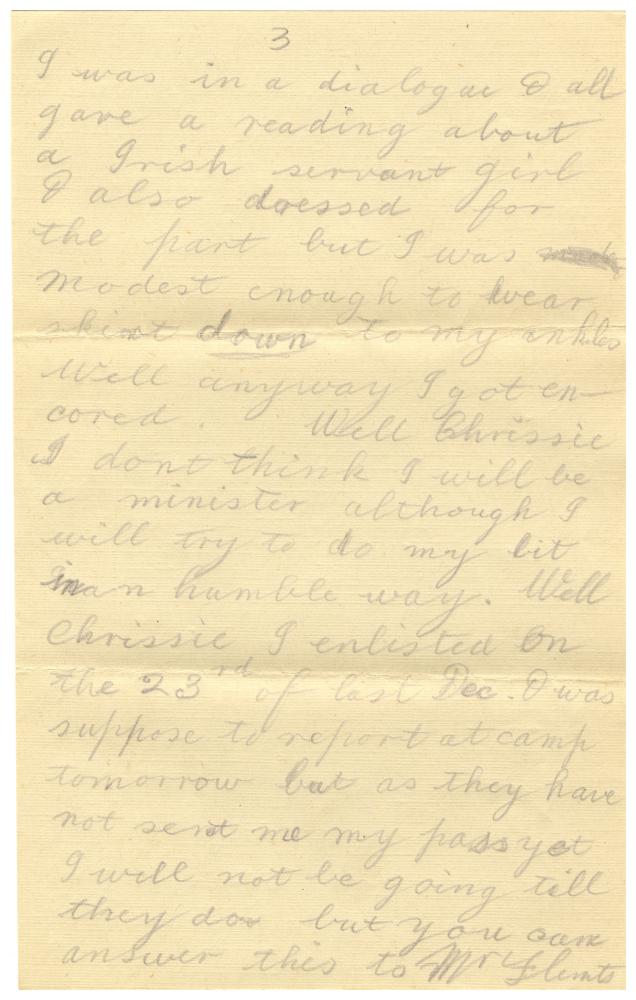 3
I was in a dialogue I all
gave a reading about
a Irish servant girl
I also dressed for
the part but I was
modest enough to wear
skirt down to my ankles
Well anyway I got en-
cored. Well Chrissie
I dont think I will be
a minister although I
will try to do my bit
in an humble way. Well
Chrissie I enlisted on
the 23rd of last Dec. I was
suppose to report at camp
tomorrow but as they have
not sent me my pass yet
I will not be going till
they do but you can
answer this to Mr